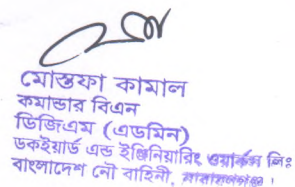 মোস্তফা কামাল
কমান্ডার বিএন
ডিজিএম (এডমিন)
ডকইয়ার্ড এন্ড ইঞ্জিনিয়ারিং ওয়ার্কস লিঃ
বাংলাদেশ নৌ বাহিনী, নারায়নগঞ্জ।